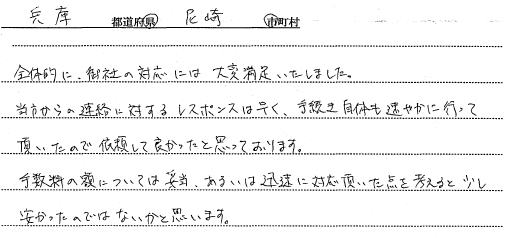 兵庫 都道府県 尼崎 市町村
全体的に、御社の対応には大変満足いたしました。
当方からの連絡に対するレスポンスは早く、手続き自体も速やかに行って
頂いたので依頼して良かったと思っております。
手数料の額については妥当、あるいは迅速に対応頂いた点を考えると少し
安かったのではないかと思います。